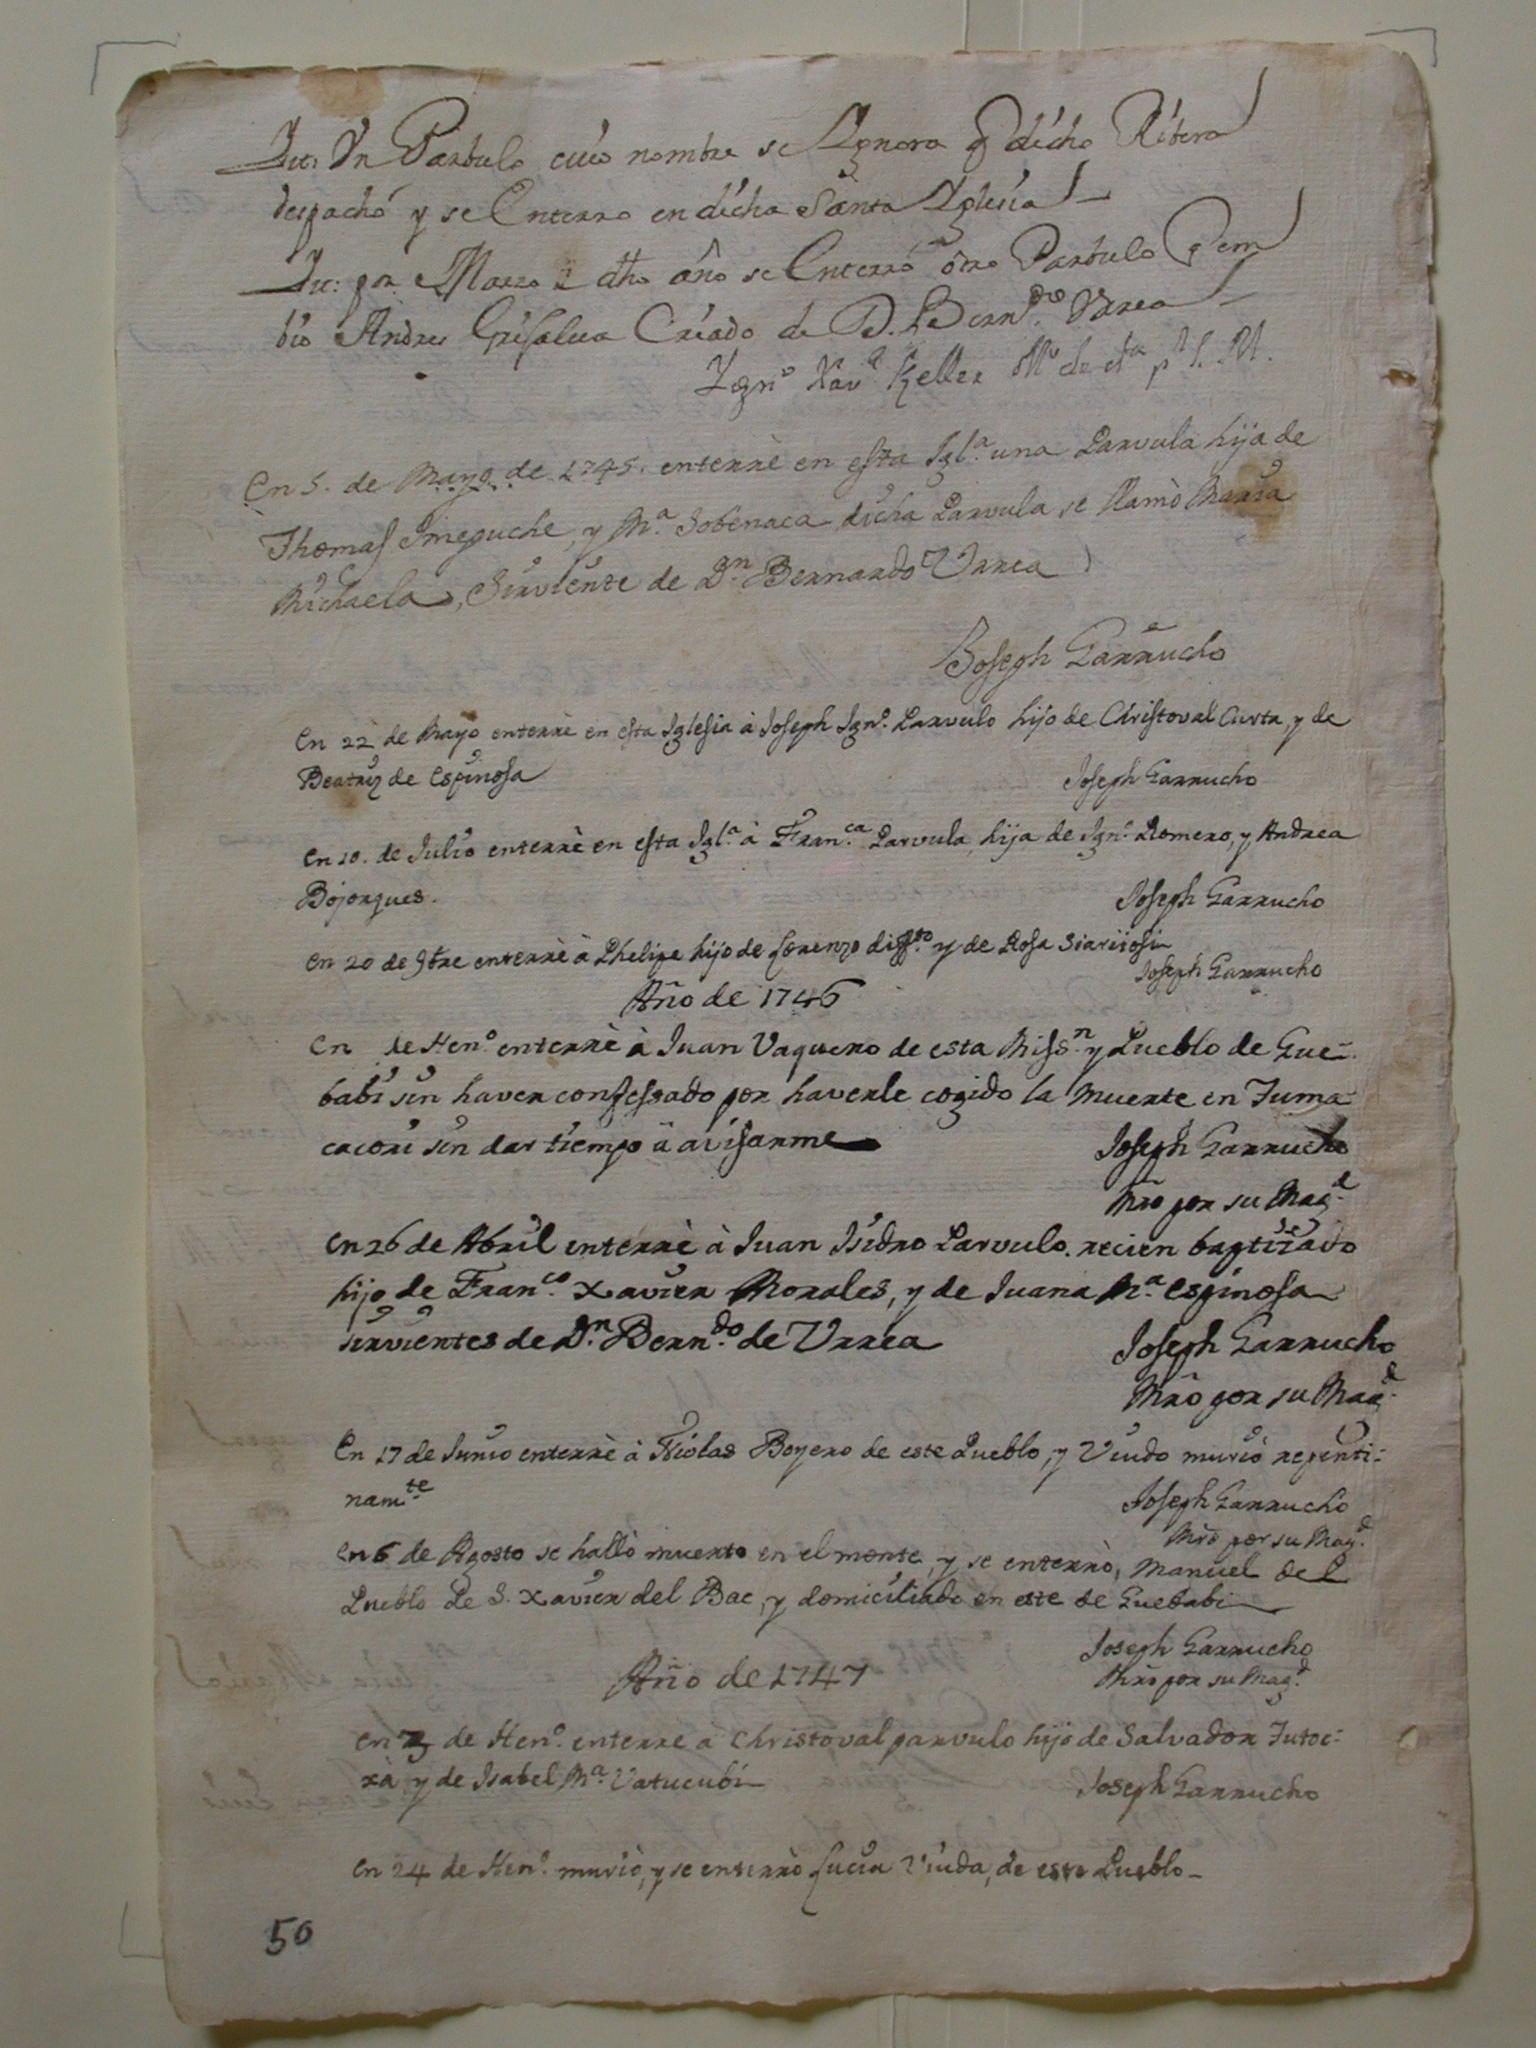 Itt. Un Parbulo cuio nombre se Ygnora q dicho Ribera
despachó y se Enterro en dicha Santa Yglesia
Itt: por Marzo dho año se Enterró otro Parbulo q em
bio Andres Grisalva Criado de D. Bern.do Urrea
Ygn.o Xav.r Keller M.o de
En 5. de Mayo de 1745. enterrè en esta Igl.a una Parvula hija de
Thomas Imeguche, y M.a Iobenaca dicha Parvula se llamò Maria
Michaela, Sirviente de D.n Bernardo Urrea
Joseph Garrucho
En 22 de Mayo enterrè en esta Iglesia à Joseph Ign.o Parvulo hijo de Christoval Curta, y de
Beatriz de Espinosa Joseph Garrucho
En 10. de Julio enterrè en esta Igl.a à Fran.ca Parvula, hija de Ign.o Romero, y Andrea
Bojorques. Joseph Garrucho
En 20 de 9bre enterrè à Phelipe hijo de Lorenzo y de Rosa
Joseph Garrucho
Año de 1746
En de Hen.o enterrè à Juan Vaquero de esta Miss.n y Pueblo de Gue-
babi sin haver confessado por haverle cogido la muerte en Tuma
cacori sin dar tiempo à avisarme Joseph Garrucho
Mro por su Mag.d
En 26 de Abril enterrè à Juan Isidro Parvulo recien baptizado
hijo de Fran.co Xavier Morales, y de Juana M.a Espinosa
sirvientes de D.n Bern.do de Urrea Joseph Garrucho
Mro por su Mag.d
En 17 de Junio enterrè à Nicolas Boyero de este Pueblo, y Viudo murió repenti-
nam.te Joseph Garrucho
Mro por su Mag.d
En 6 de Agosto se hallò muerto en el monte, y se enterrò, Manuel del
Pueblo de S. Xavier del Bac, y domiciliado en este de Guebabi
Joseph Garrucho
Año de 1747 Mro por su Mag.d
En 3 de Hen.o enterrè à Christoval parvulo hijo de Salvador Tutoc-
xa y de Isabel M.a Vatucubi Joseph Garrucho
En 24 de Hen.o muriò, y se enterrò Lucia Viuda, de este Pueblo
50